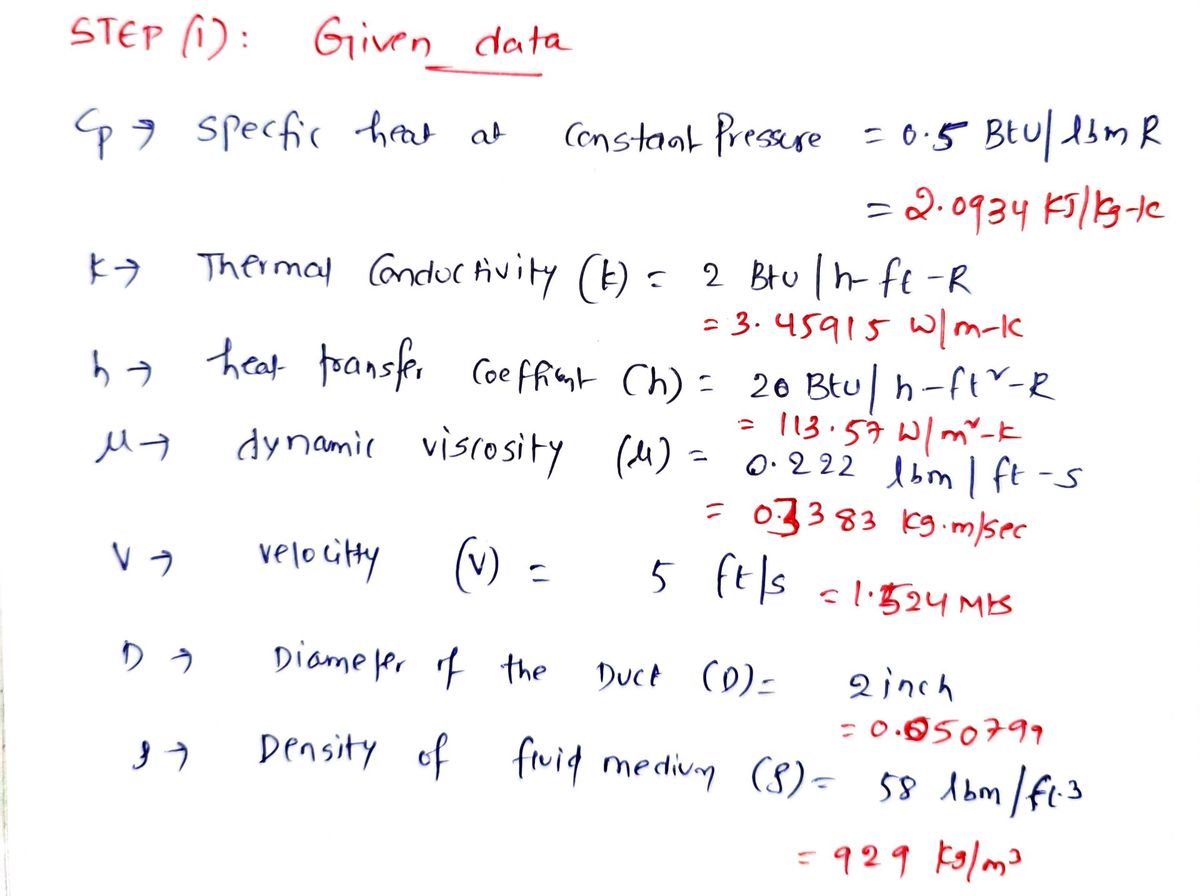 STEP (i): Given data
Cp → specfic heat at Constant Pressure = 0.5 Btu/lbm R
= 2.0934 KJ/kg-k
K → Thermal Conductivity (k) = 2 Btu/h-ft-R
= 3.45915 W/m-k
h → heat transfer Coeffient (h) = 20 Btu/h-ft²-R
= 113.57 W/m²-k
μ → dynamic viscosity (μ) = 0.222 lbm/ft-s
= 0.3383 kg.m/sec
V → velocitty (V) = 5 ft/s = 1.524 m/s
D → Diameter of the Duct (D) = 2 inch
= 0.050799
ρ → Density of fluid medium (ρ) = 58 lbm/ft.3
= 929 kg/m³